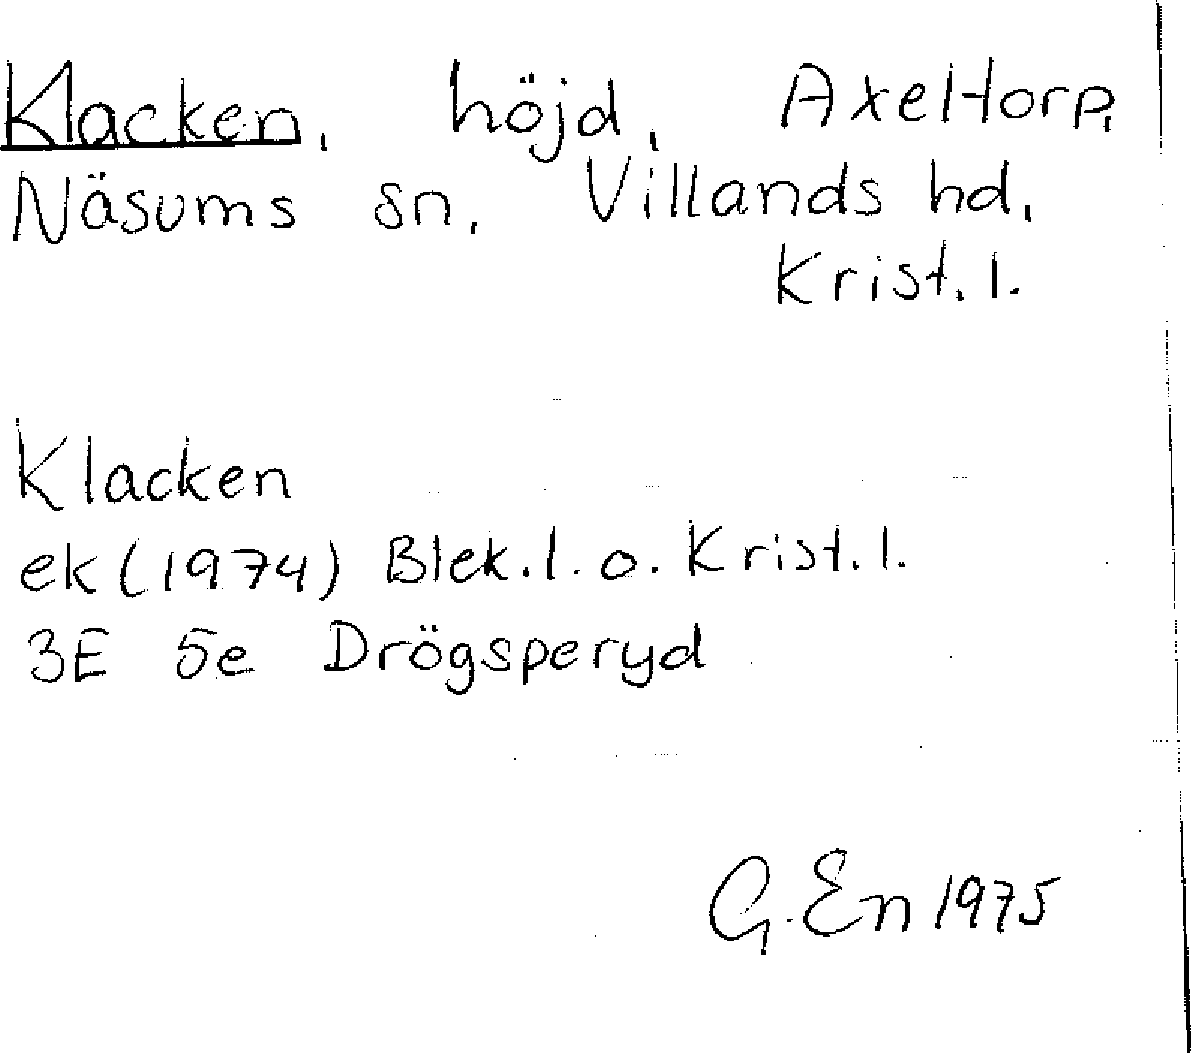 Klacken, höjd, Axeltorp,
Näsums sn, Villands hd,
Krist. l.
Klacken
ek (1974) Blek. l. o. Krist. l.
3E 5e Drögsperyd
G. En 1975